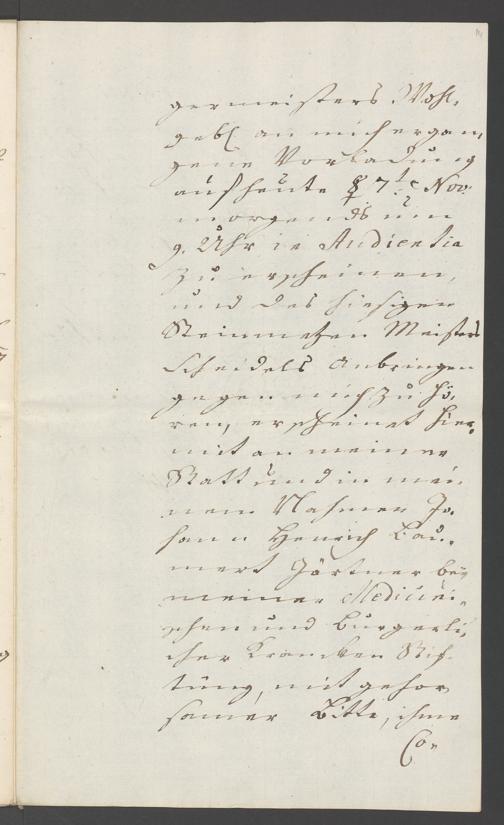 germeisters Wohl-
gebl an mich ergan-
gene Vorladung
auf heute 7t Nov.
morgends um
9. Uhr in Audientia
zu erscheinen,
und des hiesigen
Steinmetzen Meisters
Scheidels Anbringen
gegen mich zu hö-
ren, erscheinet hier-
mit an meiner
Statt und in mei-
nem Nahmen Jo-
hann Henrich Bau-
mert Gärtner bey
meiner Medicini-
schen und Burgerli-
cher Krancken Stif-
tung, mit gehor-
samer Bitte, ihme
Co-